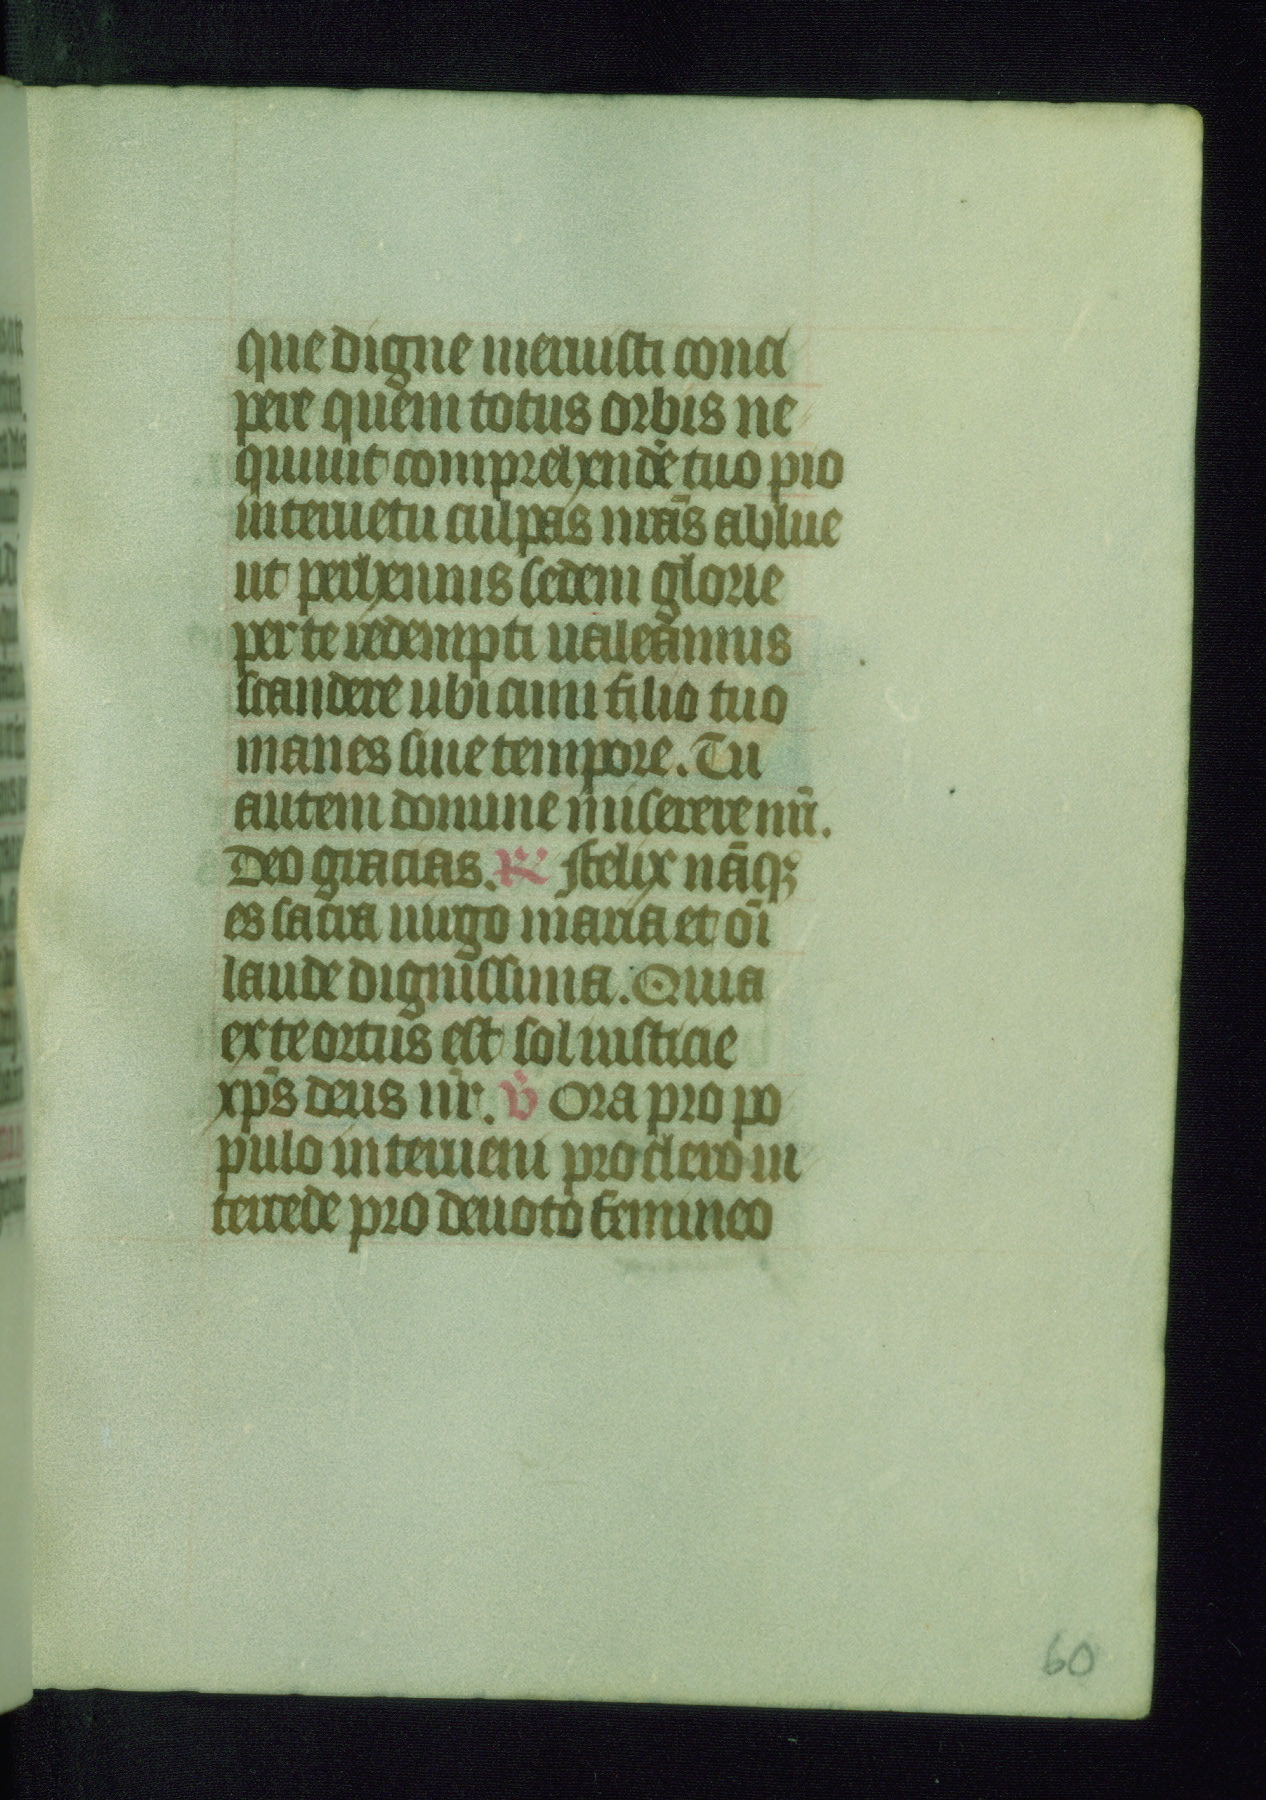 que digne meruisti conci
pere quem totus orbis ne
quiuit comprehende᷑ tuo pio
interuetu culpas nr̄as ablue
ut perhennis sedem glorie
per te redempti ualeamus
scandere ubi cum filio tuo
manes sine tempore. Tu
autem domine miserere nr̄i.
Deo gracias. R̷ Felix nāq3
es sacra uirgo maria et oī
laude dignissima. Quia
ex te ortus est sol iusticie
xp̄s deus nr̄. v̄ Ora pro po
pulo interueni pro clero in
tercede pro deuoto femineo
60